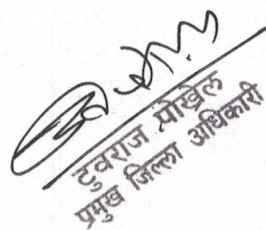 टुवराज पोखरेल
प्रमुख जिल्ला अधिकारी